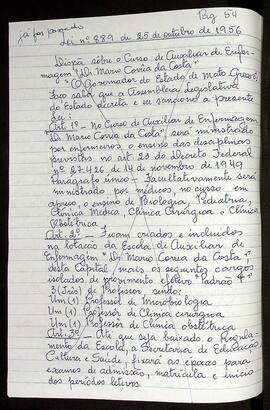 Pag 54
já foi passado
Lei nº 889 de 25 de outubro de 1956
Dispõe sôbre o Curso de Auxiliar de Enfer-
magem "Dr. Mario Corrêa da Costa"
O Governador do Estado de Mato Grosso,
Faço saber que a Assembléia Legislativa
do Estado decreta e eu sanciono a presente
lei:
Art. 1º - No Curso de Auxiliar de Enfermagem
"Dr. Mario Corrêa da Costa", será ministrado
por enfermeiros o ensino das disciplinas
previstas no art. 23 do Decreto Federal
nº 27.426 de 14 de novembro de 1949
Paragrafo único - Facultativamente será
ministrado por médicos, no curso em
apreço, o ensino de Pediatria,
Clínica Médica, Clínica Cirúrgica e Clínica
Obstétrica
Art. 2º - Ficam criados e incluidos
na lotação da Escola de Auxiliar de
Enfermagem "Dr. Mario Corrêa da Costa",
desta Capital, mais os seguintes cargos
isolados de provimento efetivo Padrão
3 (três) de Professor sendo:
Um (1) Professor de Microbiologia
Um (1) Professor de Clínica cirúrgica
Um (1) Professor de Clínica obstétrica
Art. 3º - Até que seja baixado o Regula-
mento da Escola, a Secretaria de Educação
Cultura e Saúde, fixará as épocas para
exames de admissão, matrícula e início
dos períodos letivos.